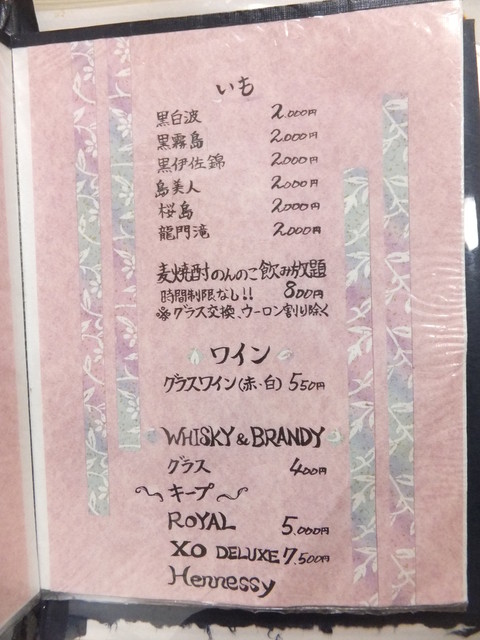 いも
黒白波 2.000円
黒霧島 2.000円
黒伊佐錦 2.000円
島美人 2.000円
桜島 2.000円
龍門滝 2.000円
麦焼酎のんのこ飲み放題
時間制限なし!! 800円
※グラス交換、ウーロン割り除く
ワイン
グラスワイン(赤・白) 550円
WHISKY & BRANDY
グラス 400円
〜キープ〜
ROYAL 5.000円
XO DELUXE 7.500円
Hennessy